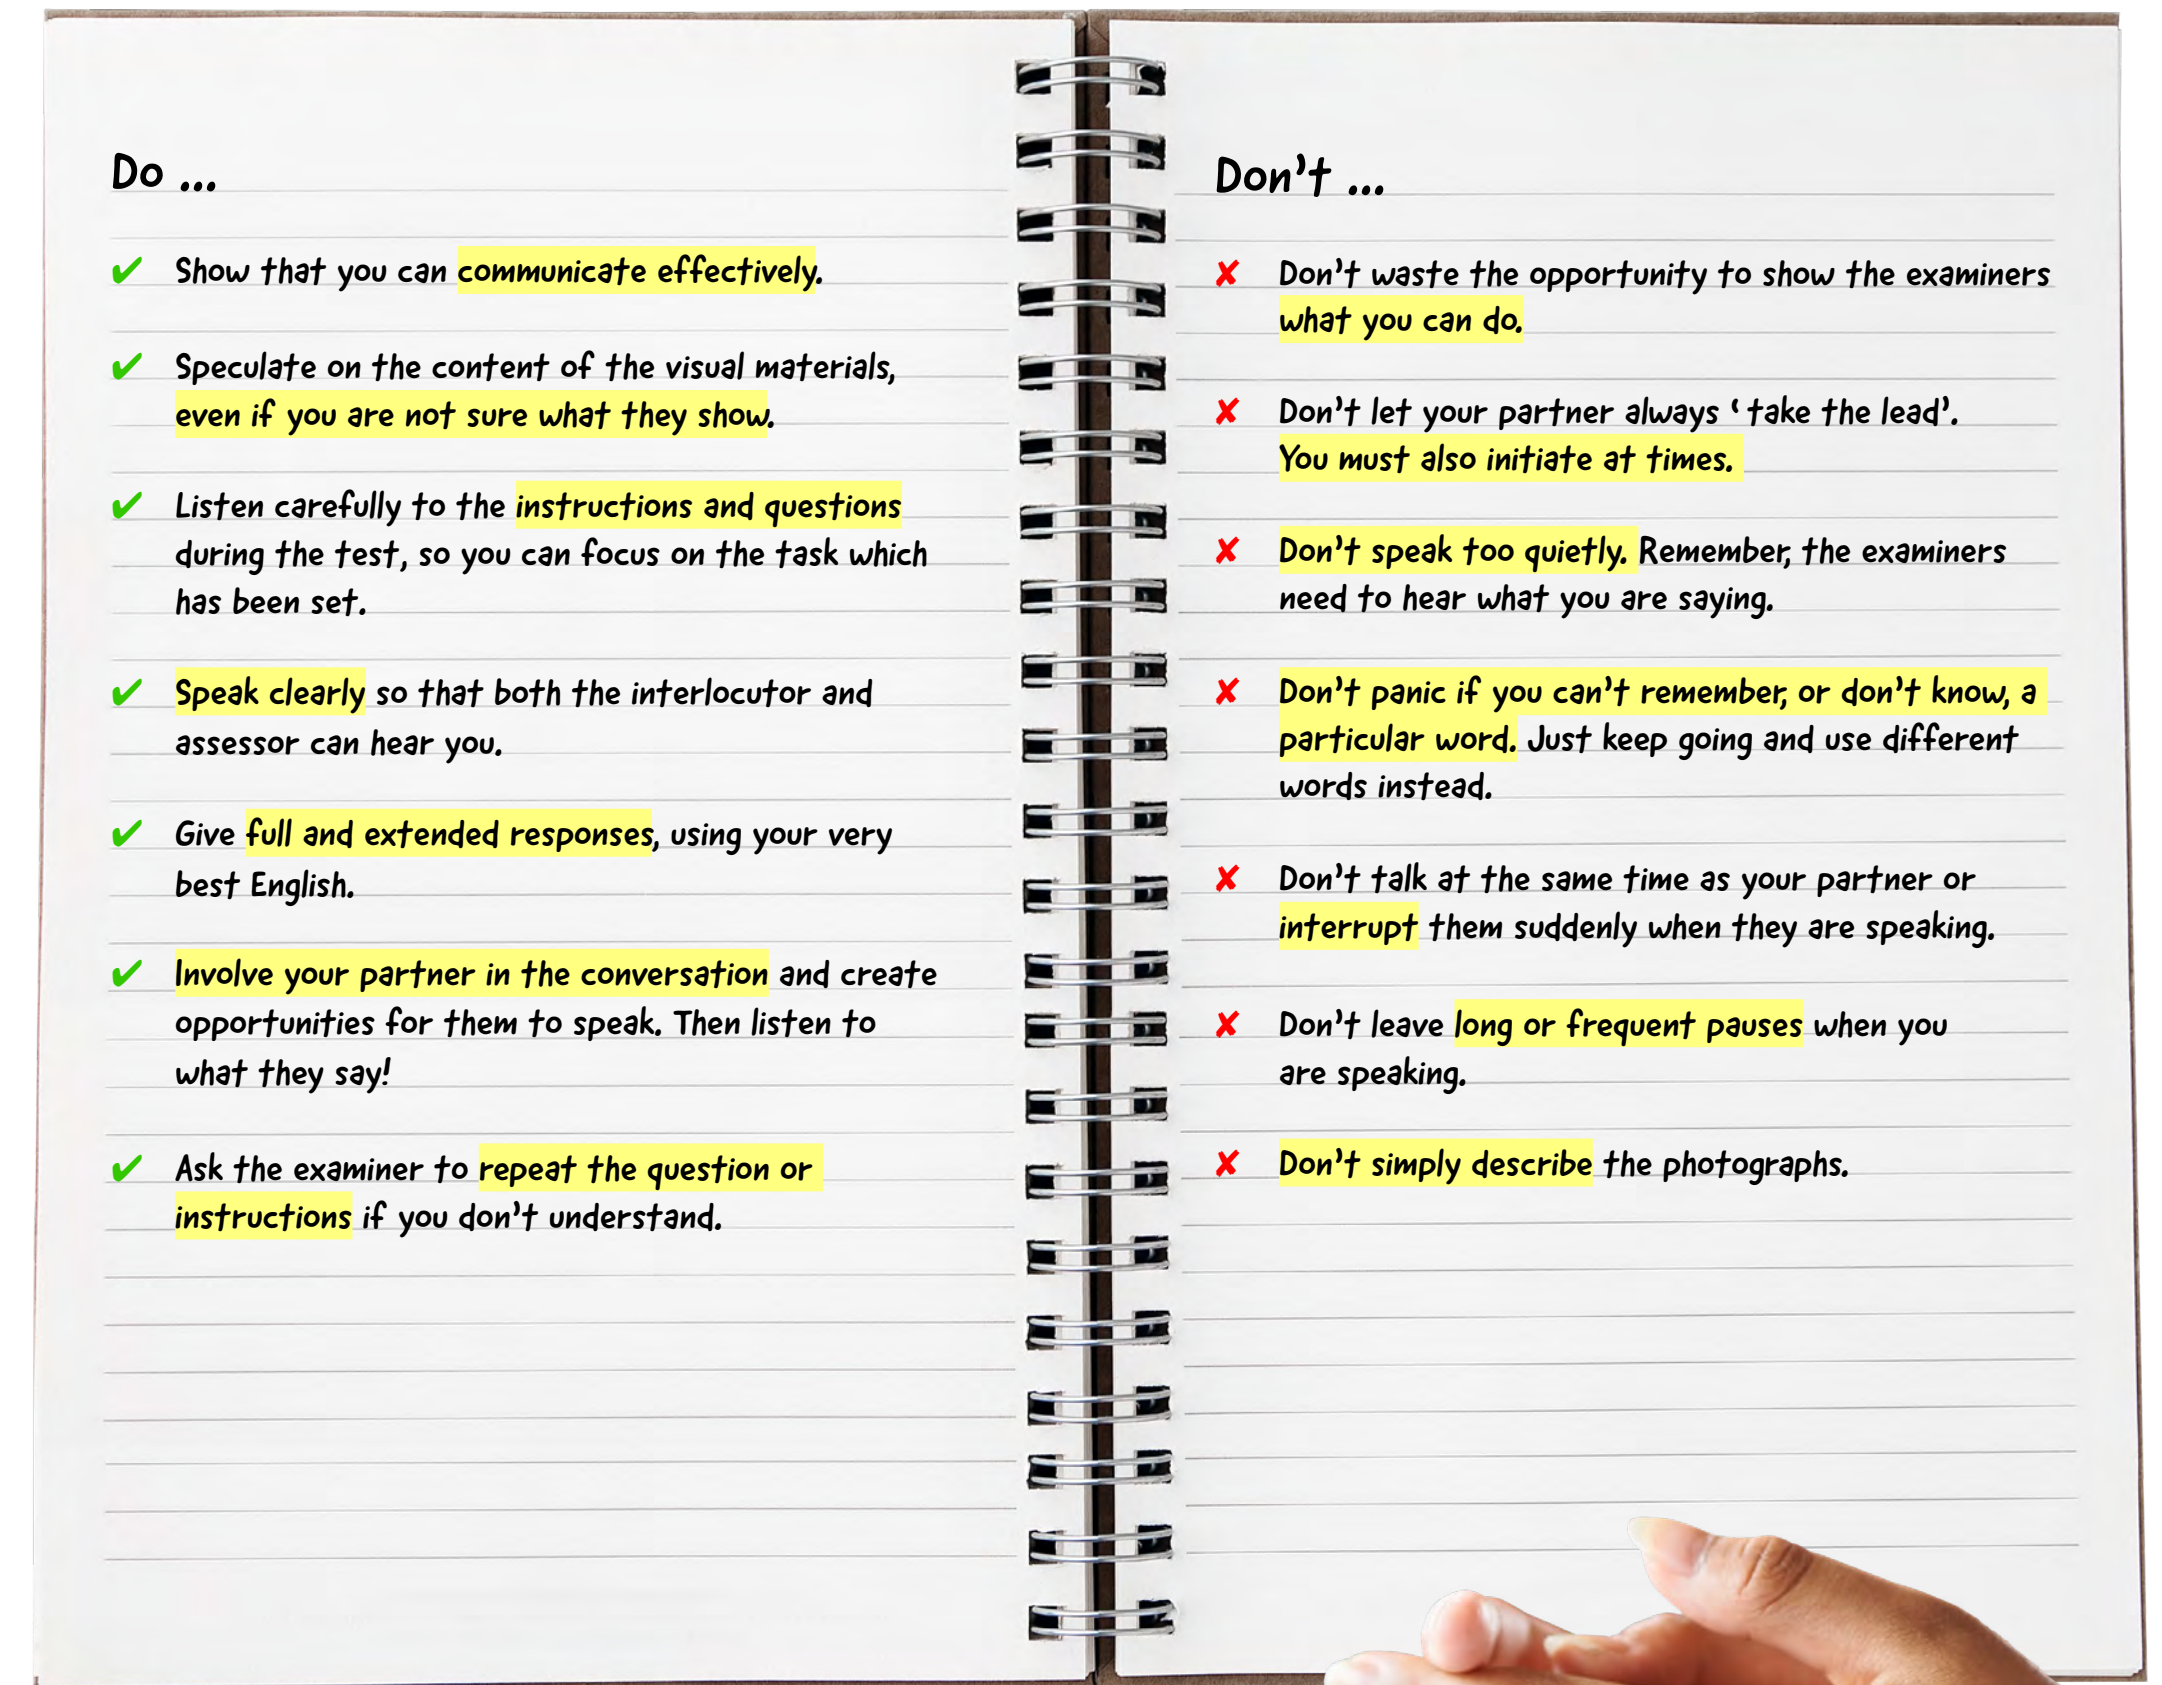 Do ...
✔ Show that you can communicate effectively.
✔ Speculate on the content of the visual materials,
even if you are not sure what they show.
✔ Listen carefully to the instructions and questions
during the test, so you can focus on the task which
has been set.
✔ Speak clearly so that both the interlocutor and
assessor can hear you.
✔ Give full and extended responses, using your very
best English.
✔ Involve your partner in the conversation and create
opportunities for them to speak. Then listen to
what they say!
✔ Ask the examiner to repeat the question or
instructions if you don't understand.
Don't ...
✘ Don't waste the opportunity to show the examiners
what you can do.
✘ Don't let your partner always ‘ take the lead’.
You must also initiate at times.
✘ Don't speak too quietly. Remember, the examiners
need to hear what you are saying.
✘ Don't panic if you can't remember, or don't know, a
particular word. Just keep going and use different
words instead.
✘ Don't talk at the same time as your partner or
interrupt them suddenly when they are speaking.
✘ Don't leave long or frequent pauses when you
are speaking.
✘ Don't simply describe the photographs.